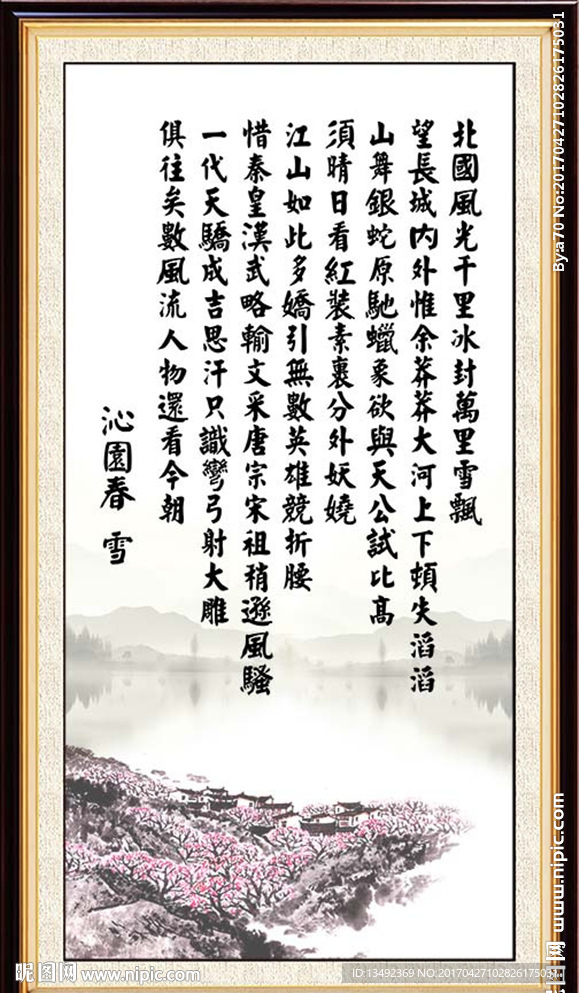 北國風光千里冰封萬里雪飄
望長城内外惟余莽莽大河上下頓失滔滔
山舞銀蛇原馳蠟象欲與天公試比高
須晴日看紅裝素裹分外妖嬈
江山如此多嬌引無數英雄競折腰
惜秦皇漢武略輸文采唐宗宋祖稍遜風騷
一代天驕成吉思汗只識彎弓射大雕
俱往矣數風流人物還看今朝
沁園春 雪
By:a70 No:20170427102826175031
昵图网 www.nipic.com
ID:13492369 NO:20170427102826175031
昵图网 www.nipic.com